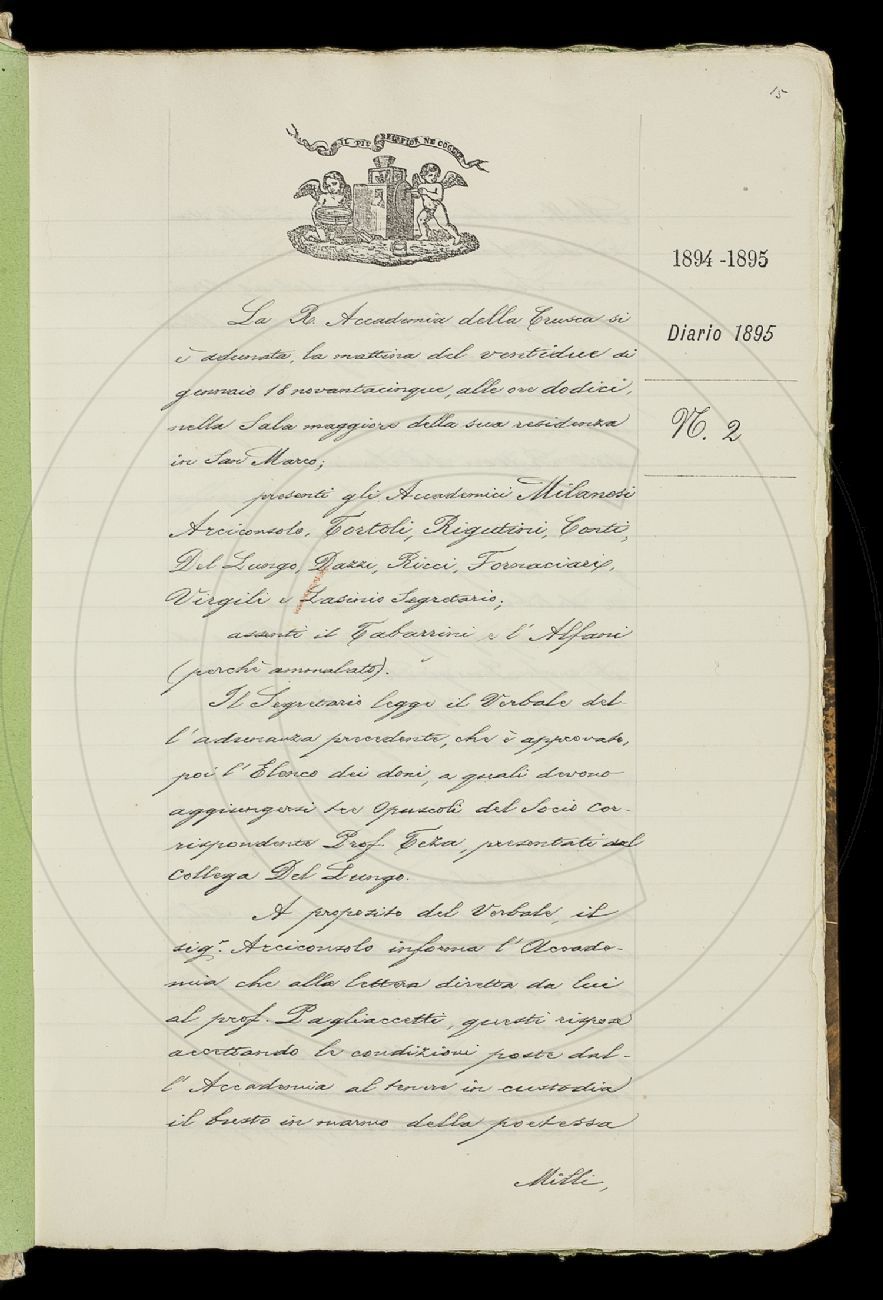 15
IL PIÙ BEL FIOR NE COGLIE
1894-1895
Diario 1895
N. 2
La R. Accademia della Crusca si
è adunata, la mattina del ventidue di
gennaio 18novantacinque, alle ore dodici,
nella Sala maggiore della sua residenza
in San Marco;
presenti gli Accademici Milanesi
Arciconsolo, Tortoli, Rigutini, Conti,
Del Lungo, Dazzi, Ricci, Fornaciari,
Virgili e Lasinio Segretario;
assenti il Tabarrini e l'Alfani
(perchè ammalato).
Il Segretario legge il Verbale del-
l'adunanza precedente, che è approvato,
poi l'Elenco dei doni, a quali devono
aggiungersi tre Opuscoli del Socio Cor-
rispondente Prof. Teza, presentati dal
Collega Del Lungo.
A proposito del Verbale, il
sigr. Arciconsolo informa l'Accade-
mia che alla lettera diretta da lui
al prof. Pagliaccetti, questi rispose
accettando le condizioni poste dal-
l'Accademia al tenere in custodia
il busto in marmo della poetessa
Milli,